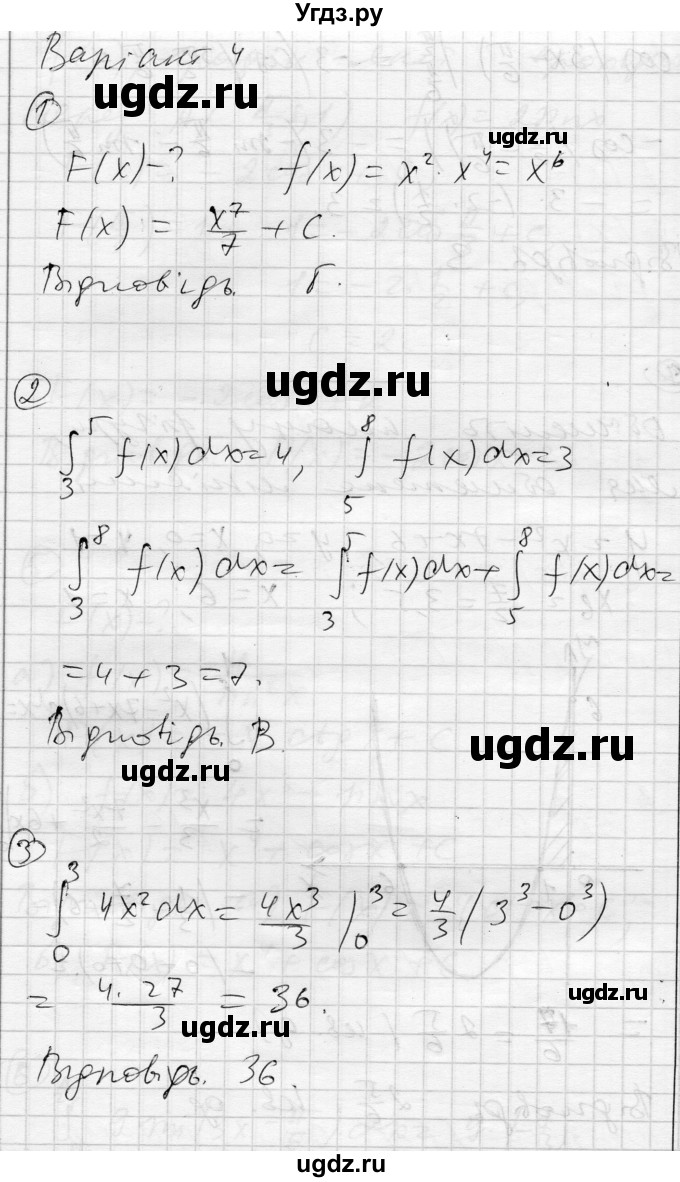 Угдз.ру
Варіант 4
ugdz.ru
1
ugdz.ru
F(x)-? f(x) = x². x⁴ = x⁶
F(x) = x⁷/7 + C.
Відповідь. Г.
ugdz.ru
2
∫₃⁵ f(x)dx=4, ∫₅⁸ f(x)dx=3
∫₃⁸ f(x)dx = ∫₃⁵ f(x)dx + ∫₅⁸ f(x)dx =
= 4 + 3 = 7.
Відповідь. В.
ugdz.ru
ugdz.ru
3
∫₀³ 4x² dx = 4x³/3 |₀³ = 4/3 (3³ - 0³)
= 4. 27/3 = 36.
ugdz.ru
ugdz.ru
Відповідь. 36.
ugdz.ru